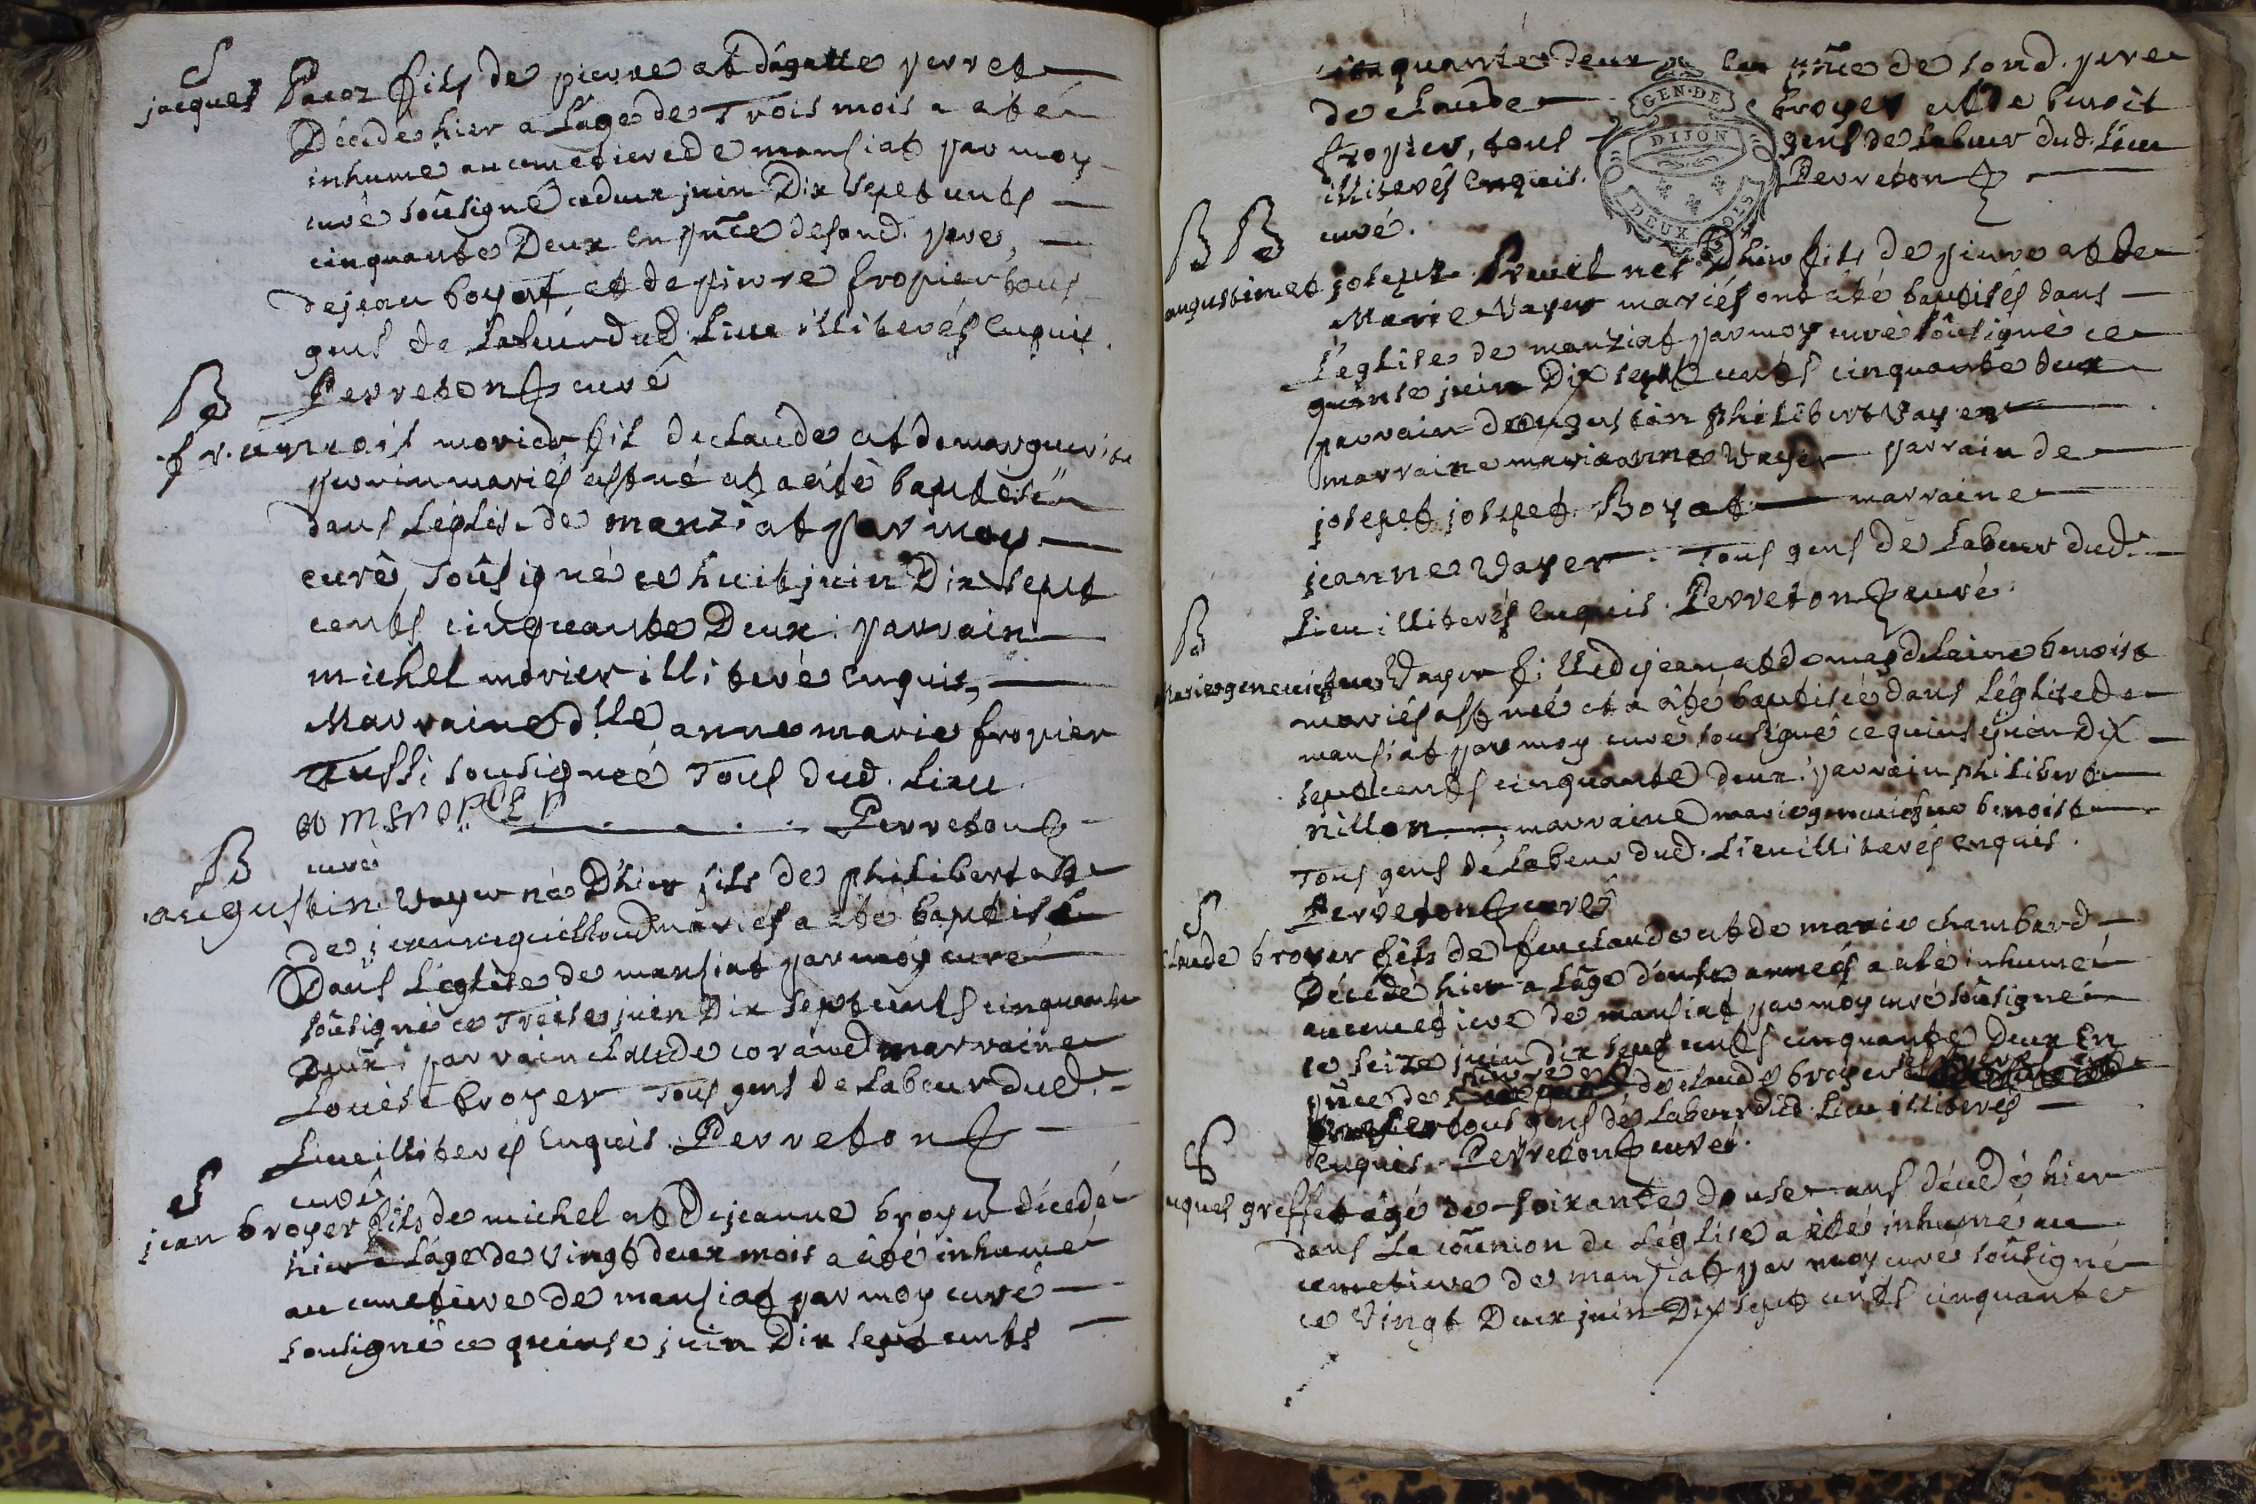 S
jacques Pacoz fils de pierre et dàgatte perret
Décédé hier a Làge de Trois mois a été
inhumé au cimetiere de mansiat par moy
curé soûsigné ce deux juin Dix sept cents
cinquante Deux en pñce de sond. pere,
de jean boyat et de pierre fropier tous
gens de Labeur dud. Lieu illiterés Enquis.
Perreton curé
B
françois morier fils de claude et de marguerite
perrin mariés est né et a été baptisé
dans L'église de manziat par moy
curé soûsigné ce huit juin Dix sept
cents cinquante Deux; parrain
michel morier illiteré enquis,
Marraine d.lle anne marie fropier
Aussi sousignée Tous dud. Lieu.
Perreton
curé
B
augustin Vayer né D'hier fils de philibert et
de jeanne guilloud mariés a été baptisé
Dans L'église de mansiat par moy curé
soûsigné ce Treise juin Dix sept cents cinquante
Deux; parrain claude corand marraine
Louise broyer Tous gens de Labeur dud.
Lieu illiterés Enquis. Perreton
curé
S
jean broyer fils de michel et De jeanne broyer décédé
hier a Làge de vingt deux mois a été inhumé
au cimetiere de mansiat par moy curé
sousigné ce quinse juin Dix sept cents
cinquante deux en pñce de sond. pere
de claude broyer et de benoit
fropier, tous gens de Labeur dud. Lieu
illiterés Enquis. Perreton
curé.
GEN. DE DIJON
DEUX SOLS
B B
augustin et joseph Preuel nés D'hier fils de pierre et de
Marie Vayer mariés ont été baptisés dans
L'église de manziat par moy curé soûsigné ce
quinse juin Dix sept cents cinquante deux
parrain d'augustin philibert Vayer
marraine marianne Vayer parrain de
josept josept Boyat marraine
jeanne Vayer. Tous gens de Labeur dud.
Lieu illiterés Enquis. Perreton curé.
B
Marie genevieve Vayer fille de jean et de magdelaine benoist
mariés est née et a été baptisée dans L'église de
mansiat par moy curé sousigné ce quinse juin Dix
sept cents cinquante deux; parrain philibert
nillon, marraine marie genevieve benoist
Tous gens de Labeur dud. Lieu illiterés enquis.
Perreton curé
S
claude broyer fils de feu claude et de marie chambard
Décédé hier a Làge d'onse années a été inhumé
au cimetiere de mansiat par moy curé soûsigné
ce seize juin dix sept cents cinquante Deux En
pñce de de claude broyer
tous gens de Labeur dud. Lieu illiterés
Enquis. Perreton curé.
S
jacques greffet âgé de soixante douse ans décédé hier
dans La coûnion de L'église a été inhumé au
cimetiere de mansiat par moy curé soûsigné
ce Vingt Deux juin Dix sept cents cinquante